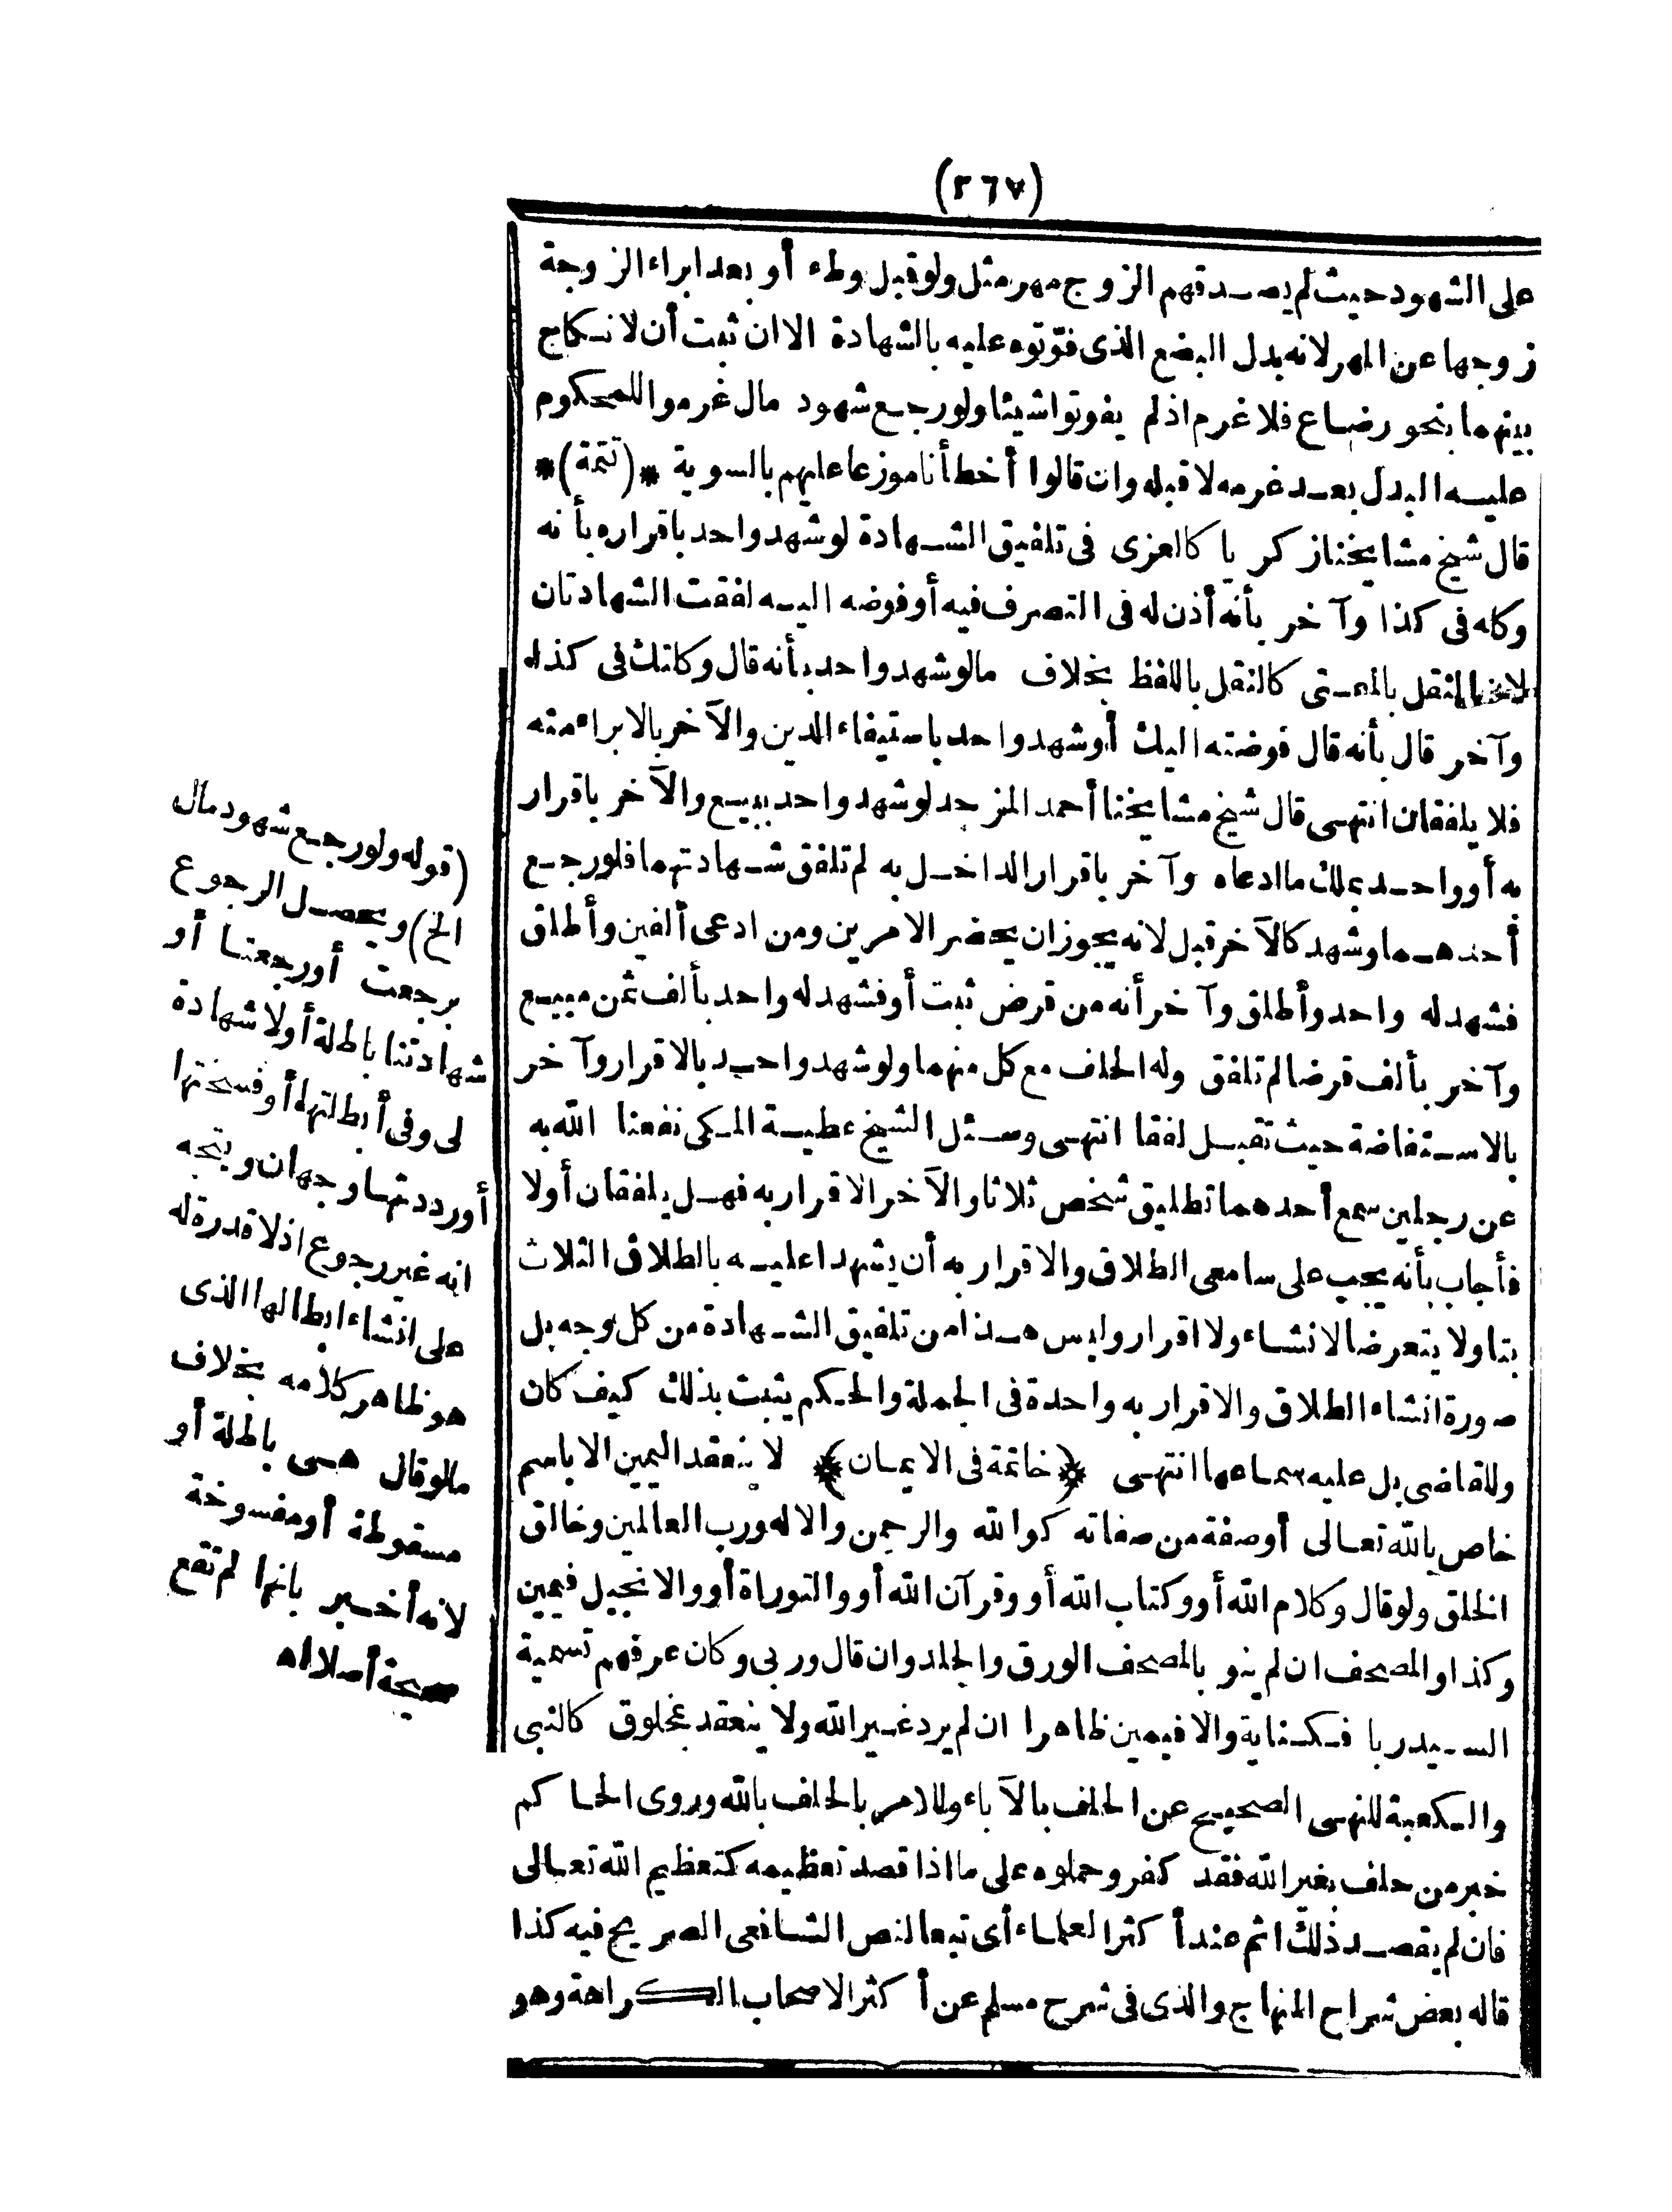 (٢٦٧)
على الشهود حيث لم يصدقهم الزوج مهر مثل ولو قبل وطء أو بعد ابراء الزوجة
زوجها عن المهر لانه بدل البضع الذى فوّتوه عليه بالشهادة الا ان ثبت أن لا نكاح
بينهما بنحو رضاع فلا غرم اذ لم يفوتوا شيئا ولو رجع شهود مال غرموا للمحكوم
عليه البدل بعد غرمه لا قبله وان قالوا أخطأنا موزعا عليهم بالسوية *(تتمة)*
قال شيخ مشايخنا زكريا كالعزى فى تلفيق الشهادة لو شهد واحد باقراره بأنه
وكله فى كذا وآخر بأنه أذن له فى التصرف فيه أو فوضه اليه لفقت الشهادتان
لان النقل بالمعنى كالنقل باللفظ بخلاف ما لو شهد واحد بأنه قال وكلتك فى كذا
وآخر قال بأنه قال فوضته اليك أو شهد واحد باستيفاء الدين والآخر بالابراء منه
فلا يلفقان انتهى قال شيخ مشايخنا أحمد المزجد لو شهد واحد ببيع والآخر باقرار
به أو واحد بملك ما ادعاه وآخر باقرار الداخل به لم تلفق شهادتهما فلو رجع
أحدهما وشهد كالآخر قبل لانه يجوز ان يحضر الامرين ومن ادعى ألفين وأطلق
فشهد له واحد وأطلق وآخر أنه من قرض ثبت أو فشهد له واحد بألف ثمن مبيع
وآخر بألف قرضا لم تلفق وله الحلف مع كل منهما ولو شهد واحد بالاقرار وآخر
بالاستفاضة حيث تقبل لفقا انتهى وسئل الشيخ عطية المكى نفعنا الله به
عن رجلين سمع أحدهما تطليق شخص ثلاثا والآخر الاقرار به فهل يلفقان أولا
فأجاب بأنه يجب على سامعى الطلاق والاقرار به أن يشهدا عليه بالطلاق الثلاث
بتا ولا يتعرضا لانشاء ولا اقرار وليس هذا من تلفيق الشهادة من كل وجه بل
صورة انشاء الطلاق والاقرار به واحدة فى الجملة والحكم يثبت بذلك كيف كان
وللقاضى بل عليه سماعها انتهى ﴿خاتمة فى الايمان﴾ لا ينعقد اليمين الا باسم
خاص بالله تعالى أو صفة من صفاته كوالله والرحمن والاله ورب العالمين وخالق
الخلق ولو قال وكلام الله أو وكتاب الله أو وقرآن الله أو والتوراة أو والانجيل فيمين
وكذا والمصحف ان لم ينو بالمصحف الورق والجلد وان قال وربى وكان عرفهم تسمية
السيد ربا فكناية والا فيمين ظاهرا ان لم يرد غير الله ولا ينعقد بمخلوق كالنبى
والكعبة للنهى الصحيح عن الحلف بالآباء وللامر بالحلف بالله وروى الحاكم
خبر من حلف بغير الله فقد كفر وحملوه على ما اذا قصد تعظيمه كتعظيم الله تعالى
فان لم يقصد ذلك اثم عند أكثر العلماء أى تبعا لنص الشافعى الصريح فيه كذا
قاله بعض شراح المنهاج والذى فى شرح مسلم عن أكثر الاصحاب الكراهة وهو
(قوله ولو رجع شهود مال
الخ) ويحصل الرجوع
برجعت أو رجعنا أو
شهادتنا باطلة أو لا شهادة
لى وفى أبطلتها أو فسختها
أو رددتها وجهان ويتجه
انه غير رجوع اذ لا قدرة له
على انشاء ابطالها الذى
هو ظاهر كلامه بخلاف
ما لو قال هى باطلة أو
مسقوطة أو مفسوخة
لانه أخبر بانها لم تقع
صحيحة أصلا اه